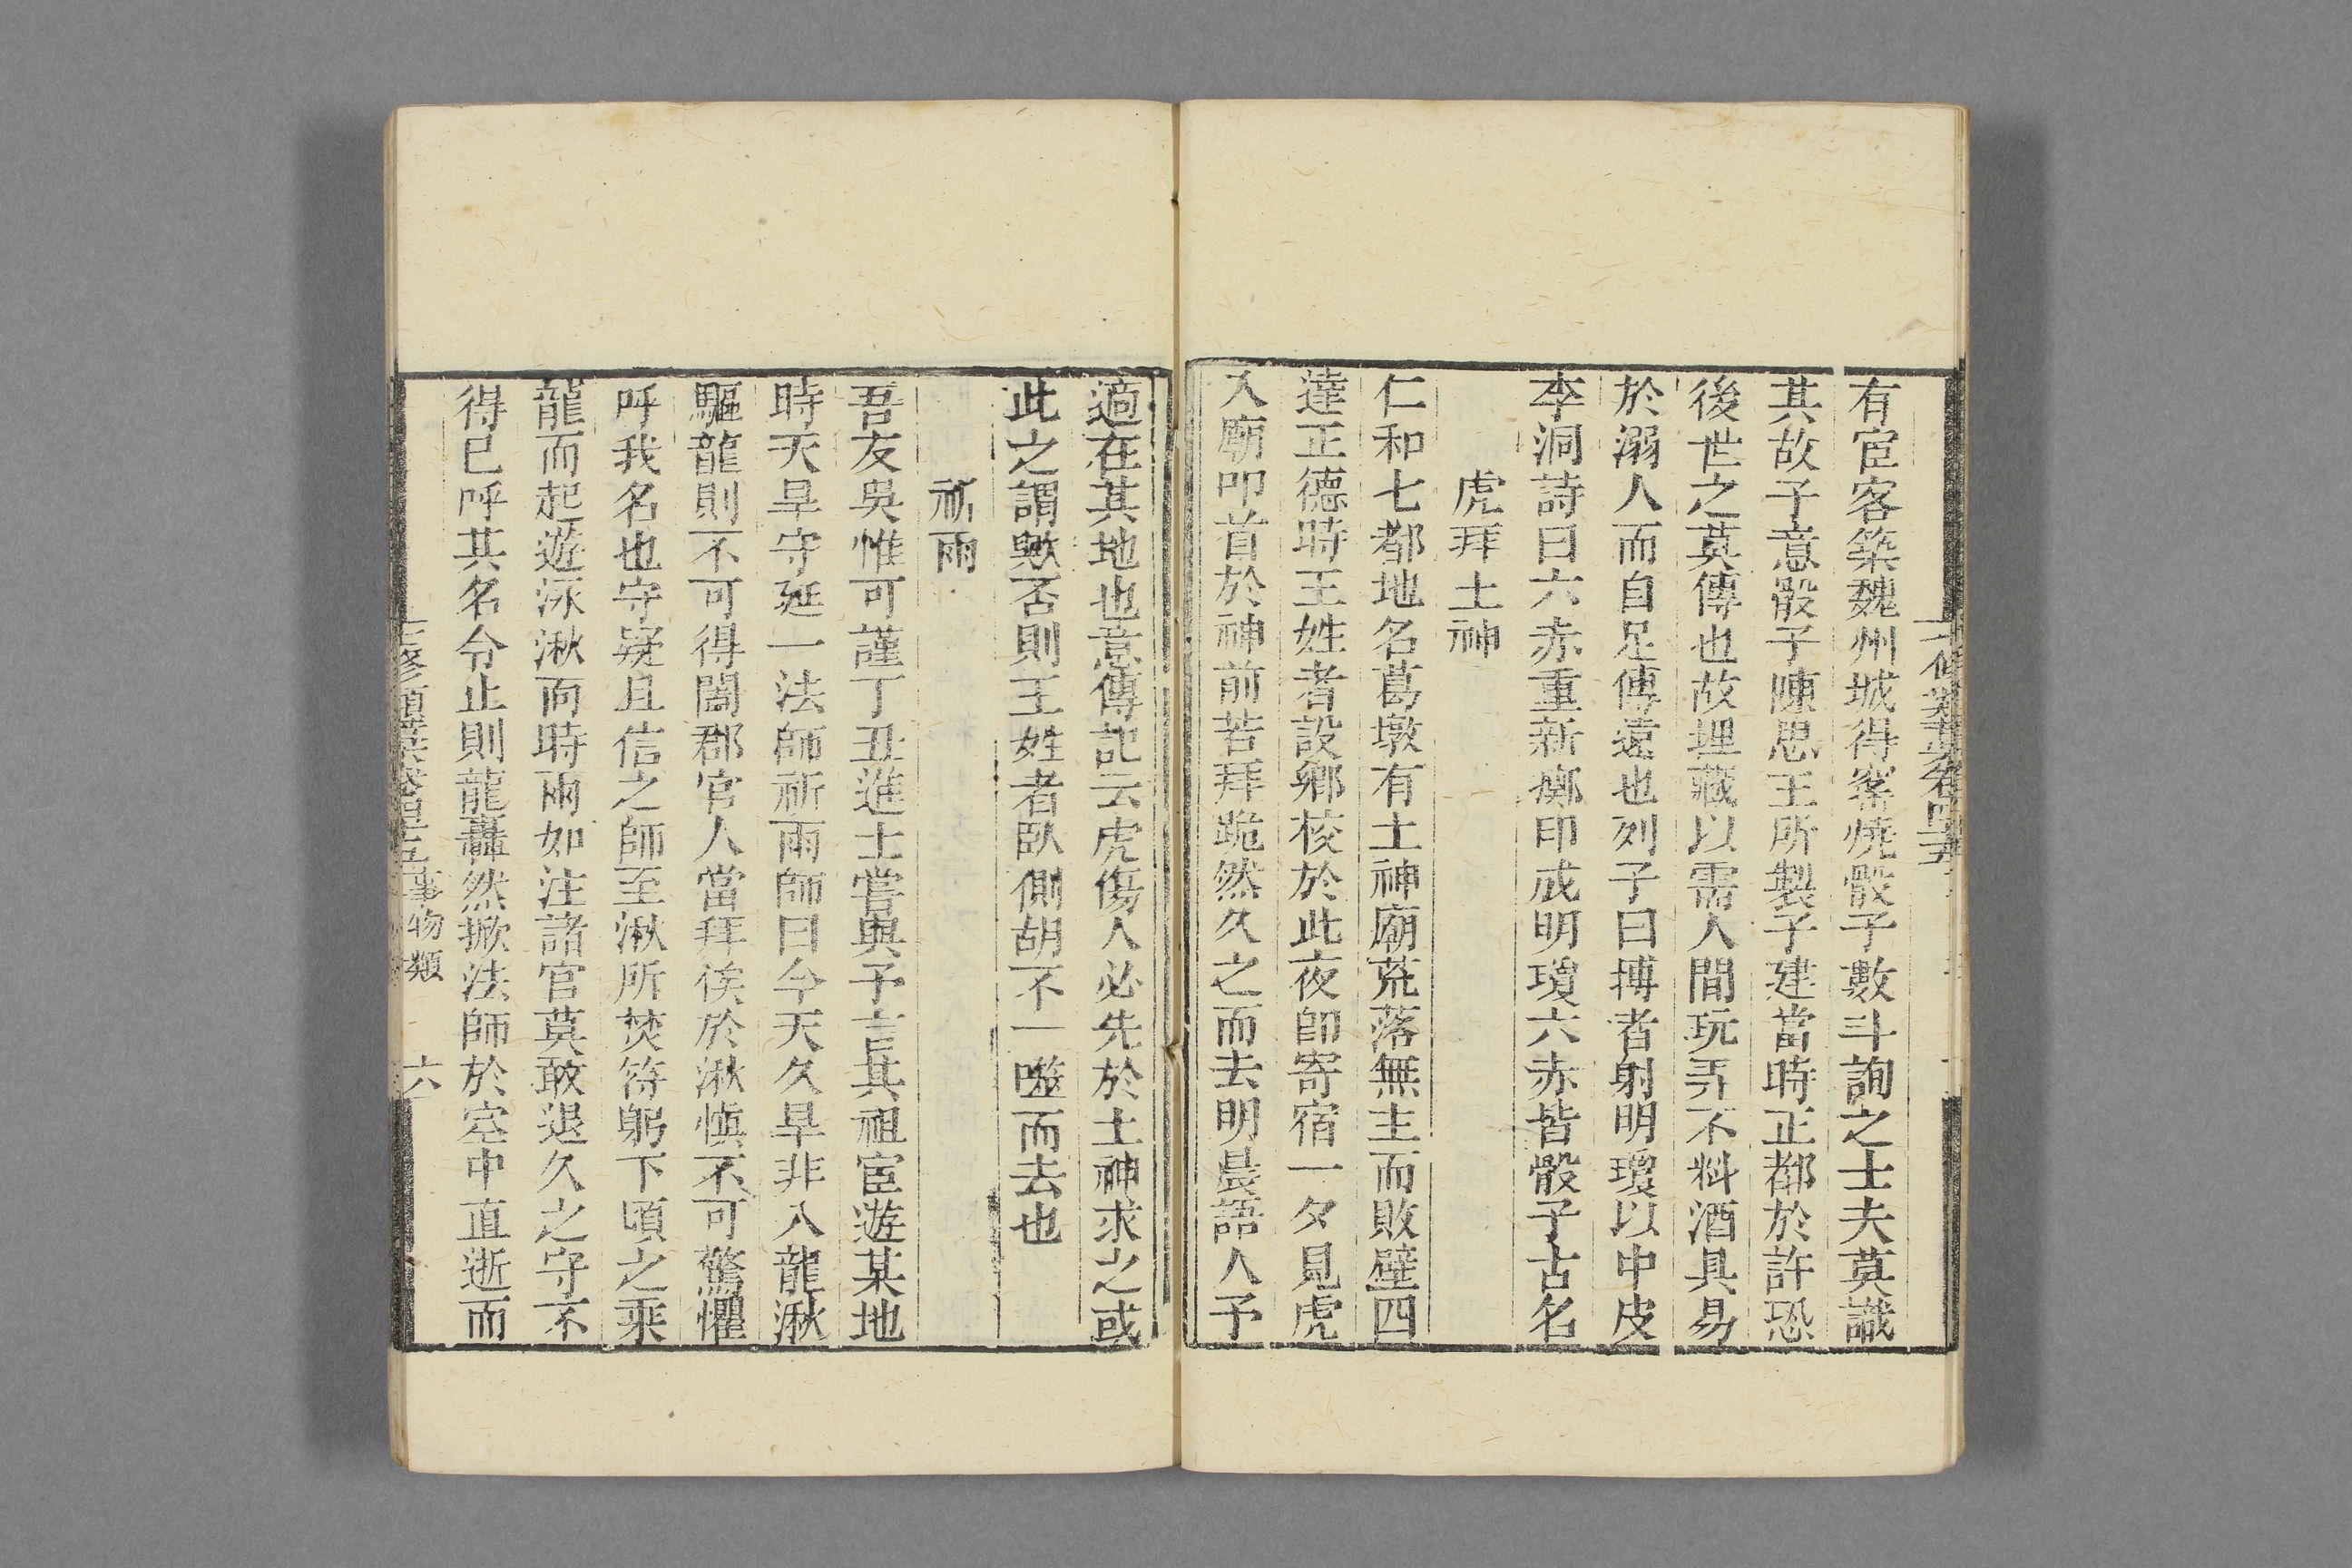 有宦客築魏州城得窖燒骰子數斗詢之士夫莫識
其故子意骰子陳思王所製子建當時正都於許恐
後世之莫傳也故埋藏以需人間玩弄不料酒具易
於溺人而自足傳遠也列子曰博者射明瓊以中皮
李洞詩曰六赤重新擲印成明瓊六赤皆骰子古名
虎拜土神
仁和七都地名葛墩有土神廟荒落無主而敗壁四
達正德時王姓者設鄉校於此夜卽寄宿一夕見虎
入廟叩首於神前若拜跪然久之而去明晨語人予
適在其地也意傳記云虎傷人必先於土神求之或
此之謂歟否則王姓者臥側胡不一噬而去也
祈雨
吾友吳惟可謹丁丑進士嘗與予言其祖宦遊某地
時天旱守延一法師祈雨師曰今天久旱非入龍湫
驅龍則不可得闔郡官人當拜俟於湫愼不可驚懼
呼我名也守疑且信之師至湫所焚符躬下頃之乘
龍而起遊泳湫面時雨如注諸官莫敢退久之守不
得已呼其名令止則龍轟然掀法師於空中直逝而
七修類藁卷四十五 事物類 六